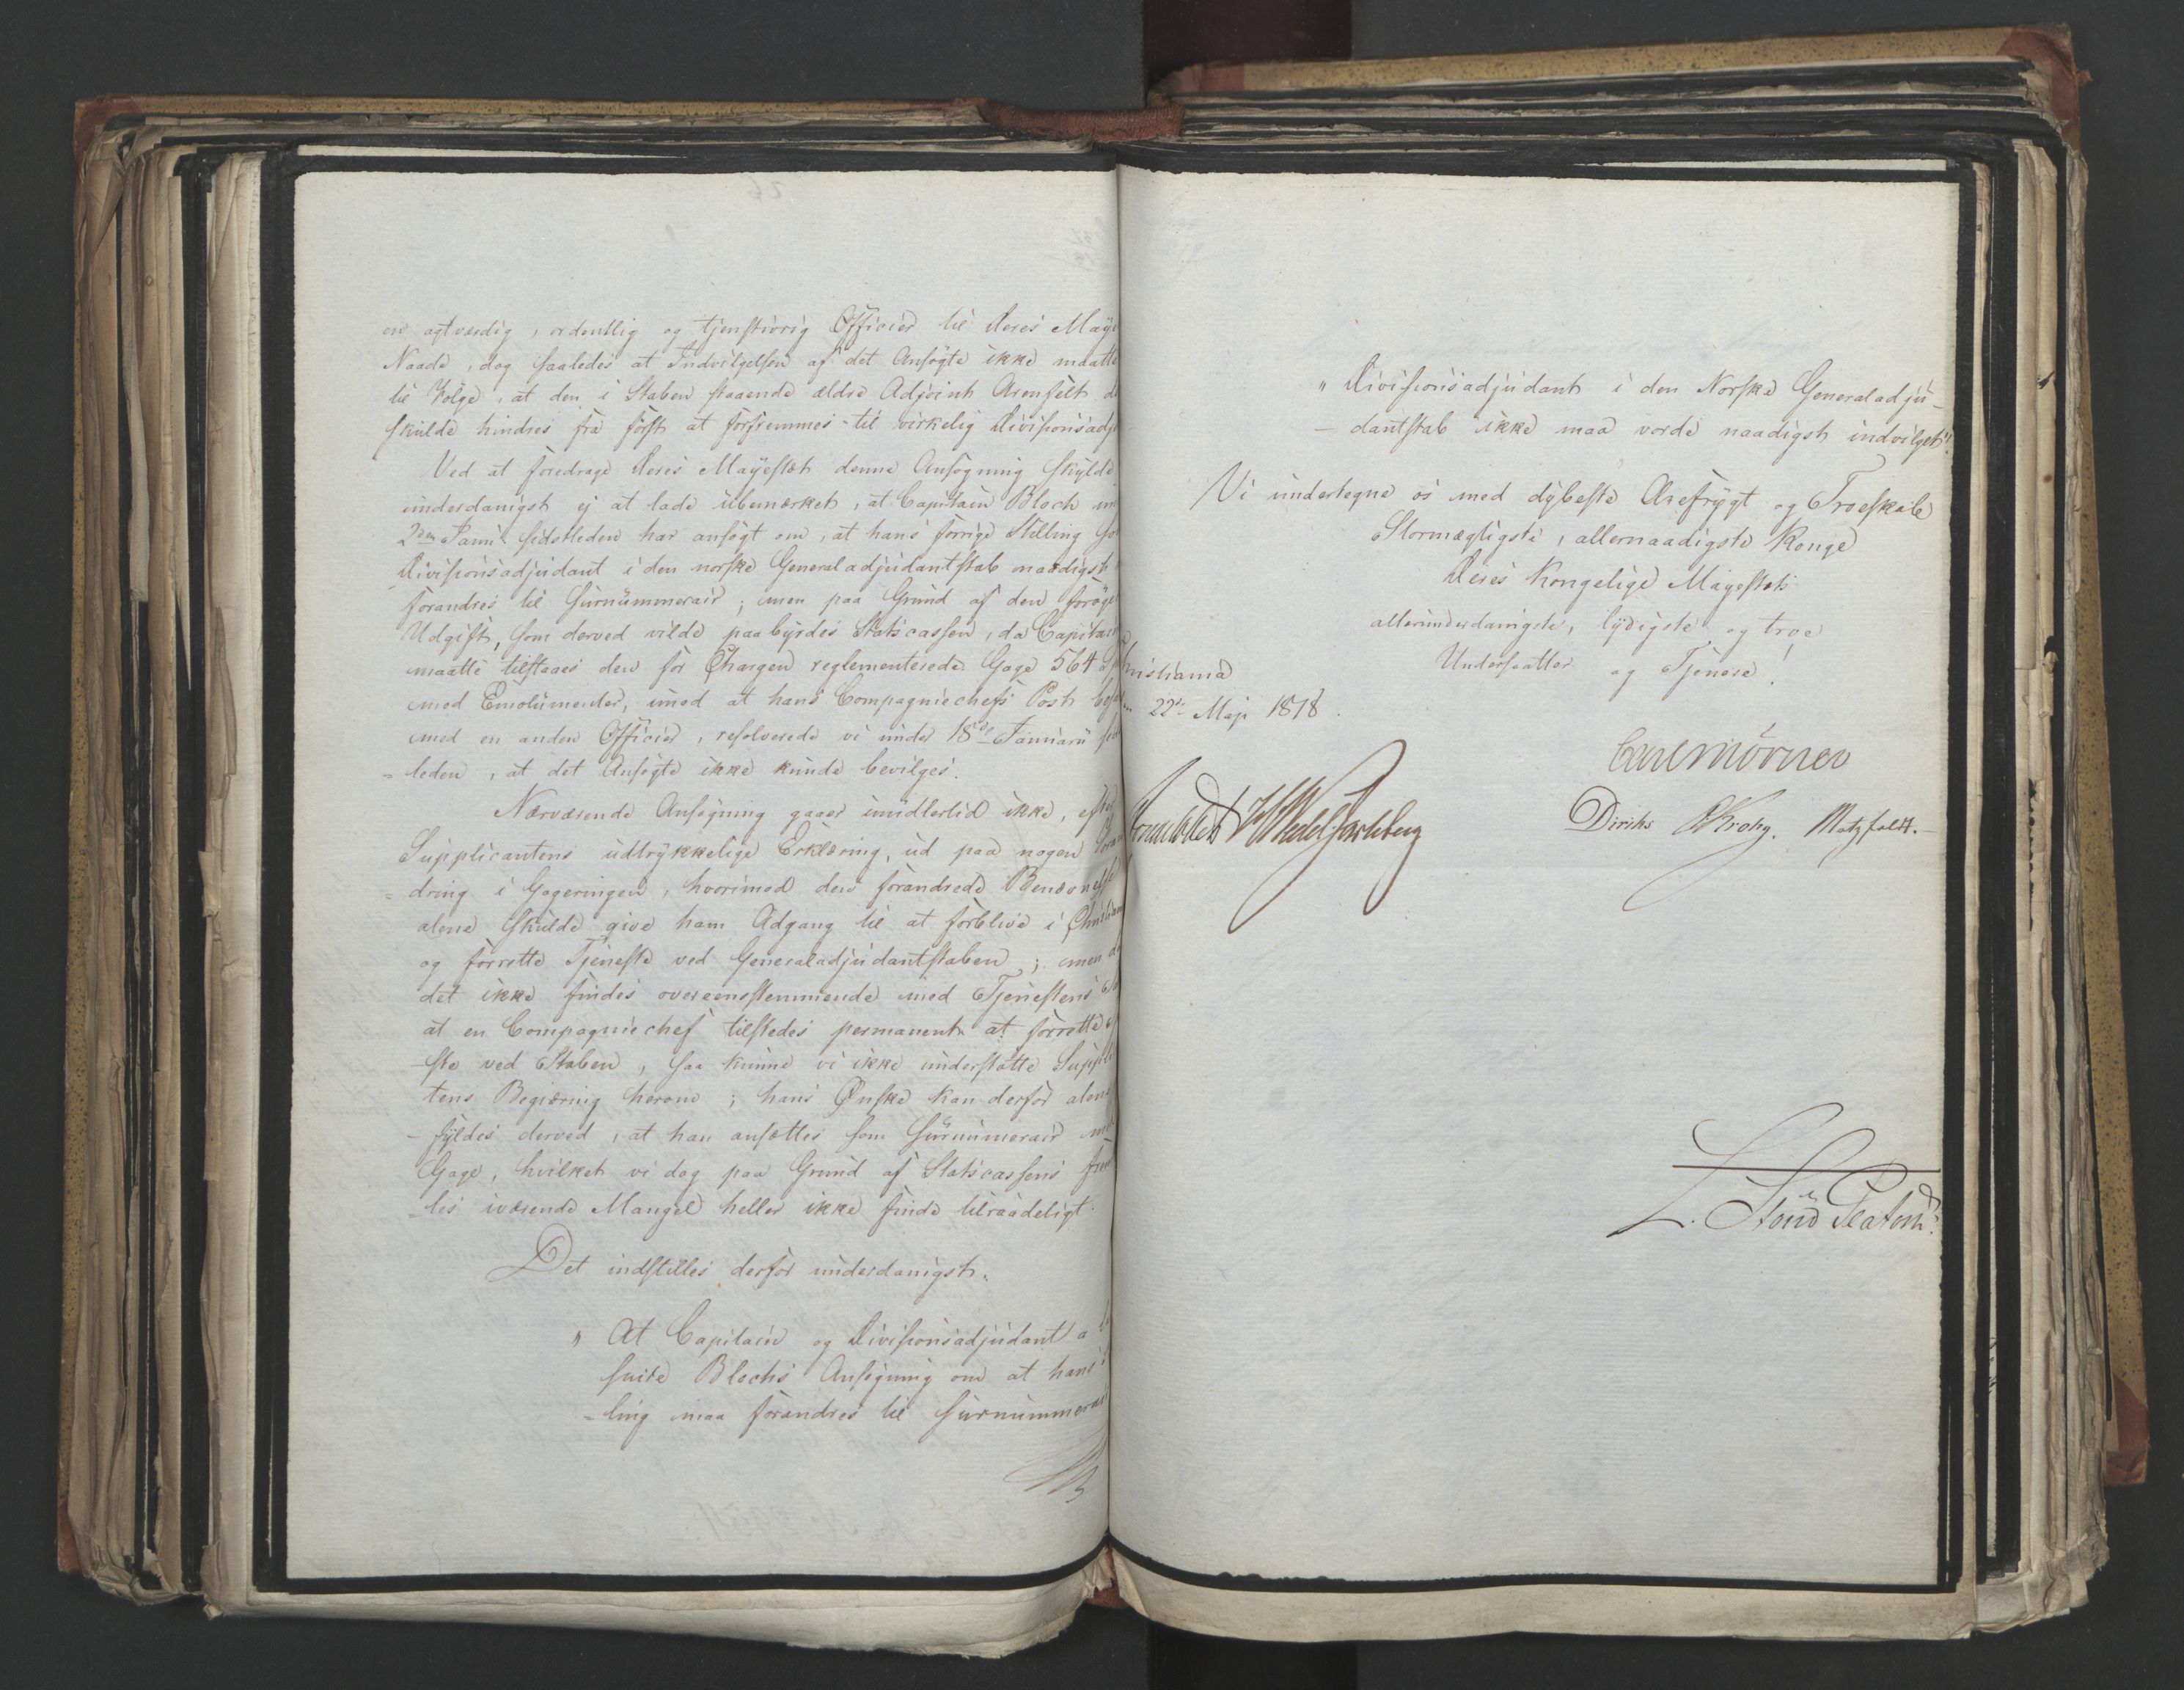 en agtværdig, ordentlig og tjenstivrig Officier til Deres Maye
Naade, dog saaledes at Indvilgelsen af det Ansøgte ikke maatte
til Følge, at den i Staben staaende ældre Adjoint Arenfelt
skulde hindres fra først at forfremmes til virkelig Divisionsadj
Ved at foredrage Deres Mayestæt denne Ansøgning skylde
underdanigst ej at lade ubemærket, at Capitain Bloch un
2den Janu: sidstleden har ansøgt om, at hans forrige Stilling so
Divisionsadjudant i den norske Generaladjudantstab naadigst
forandres til Surnummerair; men paa Grund af den forøge
Udgift, som derved vilde paabyrdes Statscassen, da Capitain
maatte tilstaaes den for Chargen reglementerede Gage 564 Sp
med Emolumenter, imod at hans Compagniechefs Post besæ
med en anden Officier, resolverede vi under 18de Januarii sid
-leden, at det Ansøgte ikke kunde bevilges.
Nærværende Ansøgning gaaer imidlertid ikke, efter
Supplicantens udtrykkelige Erklæring, ud paa nogen Foran
-dring i Gageringen, hvorimod den forandrede Benævnelse
alene skulde give ham Adgang til at forblive i Christian
og forrette Tjeneste ved Generaladjudantstaben; men da
det ikke findes overeensstemmende med Tjenestens
at en Compagniechef tilstedes permanent at forrette
-ste ved Staben, saa kunne vi ikke understøtte Suppli
tens Begiæring herom; hans Ønske kan derfor alene
-fyldes derved, at han ansættes som Surnumerair med
Gage, hvilket vi dog paa Grund af Statscassens frem
-les iværende Mangel heller ikke finde tilraadeligt.
Det indstilles derfor underdanigst:
" At Capitain og Divisionsadjudant a la
suite Blochs Ansøgning om at hans
-ling maa forandres til Surnummerair
" Divisionsadjudant i den Norske Generaladju-
-dantstab ikke maa vorde naadigst indvilget."
Vi undertegne os med dybeste Ærefrygt og Troeskab
Stormægtigste, allernaadigste Konge
Deres Kongelige Mayestæts
allerunderdanigste, lydigste og troe
Undersaatter og Tjenere!
hristiania
22de Maji 1818.
Carl Mörner
HWedel Jarlsberg
Diriks CKrohg. Motzfeldt.
L. Stoud Platou